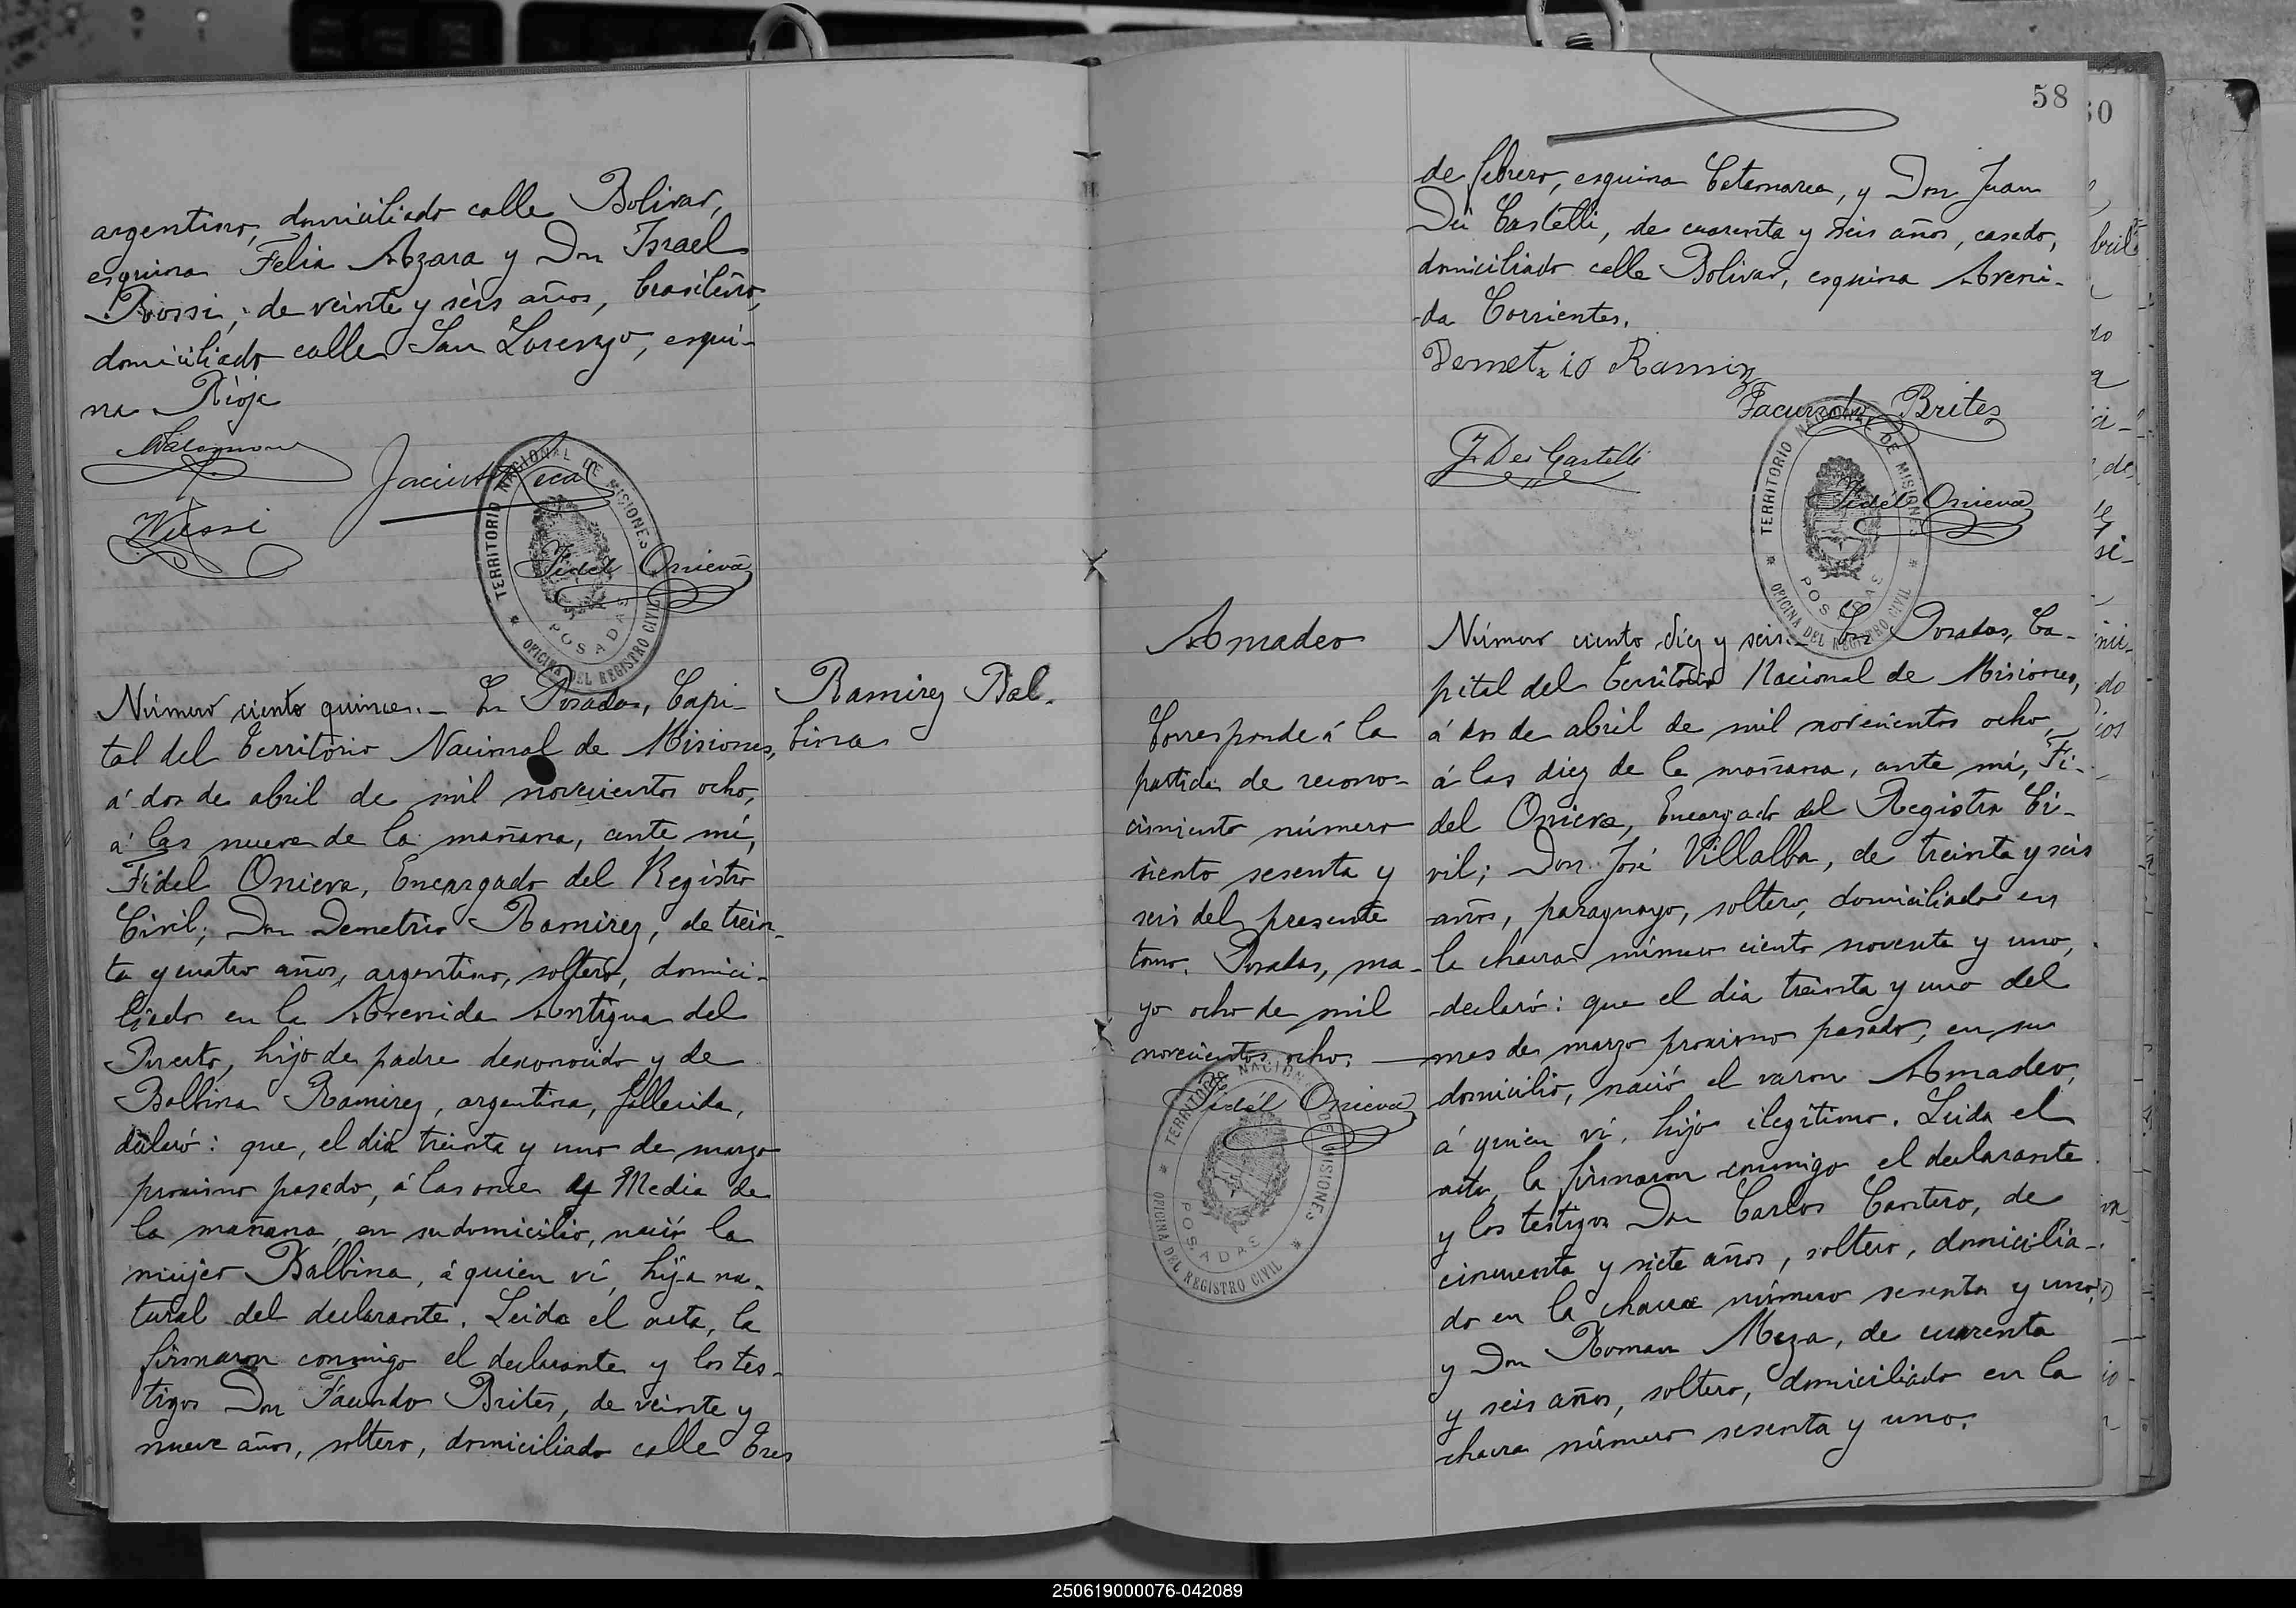 argentino, domiciliado calle Bolivar,
esquina Felix Azara y Don Israel
Rossi, de veinte y seis años, brasilero,
domiciliado calle San Lorenzo, esqui-
na Rioja
Fidel Onieva
TERRITORIO NACIONAL DE MISIONES
POSADAS
OFICINA DEL REGISTRO CIVIL
Número ciento quince.- En Posadas, Capi-
tal del Territorio Nacional de Misiones,
á dos de abril de mil novecientos ocho,
á las nueve de la mañana, ante mí,
Fidel Onieva, Encargado del Registro
Civil; Don Demetrio Ramirez, de trein-
ta y cuatro años, argentino, soltero, domici-
liado en la Avenida Antigua del
Puerto, hijo de padre desconocido y de
Balbina Ramirez, argentina, fallecida,
declaró: que, el dia treinta y uno de marzo
proximo pasado, á las once y Media de
la mañana, en su domicilio, nació la
mujer Balbina, á quien ví, hija na-
tural del declarante. Leida el acta, la
firmaron conmigo el declarante y los tes-
tigos Don Facundo Brites, de veinte y
nueve años, soltero, domiciliado calle Tres
Ramirez Bal-
bina
58
de febrero, esquina Catamarca, y Don Juan
Dei Castelli, de cuarenta y seis años, casado,
domiciliado calle Bolivar, esquina Aveni-
-da Corrientes.
Demetrio Ramirez
Facundo Brites
J. Dei Castelli
Fidel Onieva
TERRITORIO NACIONAL DE MISIONES
POSADAS
OFICINA DEL REGISTRO CIVIL
Amadeo
Corresponde á la
partida de recono-
cimiento número
ciento sesenta y
seis del presente
tomo. Posadas, ma-
yo ocho de mil
novecientos ocho.
Fidel Onieva
TERRITORIO NACIONAL DE MISIONES
POSADAS
OFICINA DEL REGISTRO CIVIL
Número ciento diez y seis.- En Posadas, Ca-
pital del Territorio Nacional de Misiones,
á dos de abril de mil novecientos ocho,
á las diez de la mañana, ante mí, Fi-
del Onieva, Encargado del Registro Ci-
vil; Don José Villalba, de treinta y seis
años, paraguayo, soltero, domiciliado en
la chacra número ciento noventa y uno,
declaró: que el dia treinta y uno del
mes de marzo proximo pasado, en su
domicilio, nació el varon Amadeo,
á quien ví, hijo ilegítimo. Leida el
acta, la firmaron conmigo el declarante
y los testigos Don Carlos Cantero, de
cincuenta y siete años, soltero, domicilia-
do en la chacra número sesenta y uno,
y Don Roman Meza, de cuarenta
y seis años, soltero, domiciliado en la
chacra número sesenta y uno.
250619000076-042089